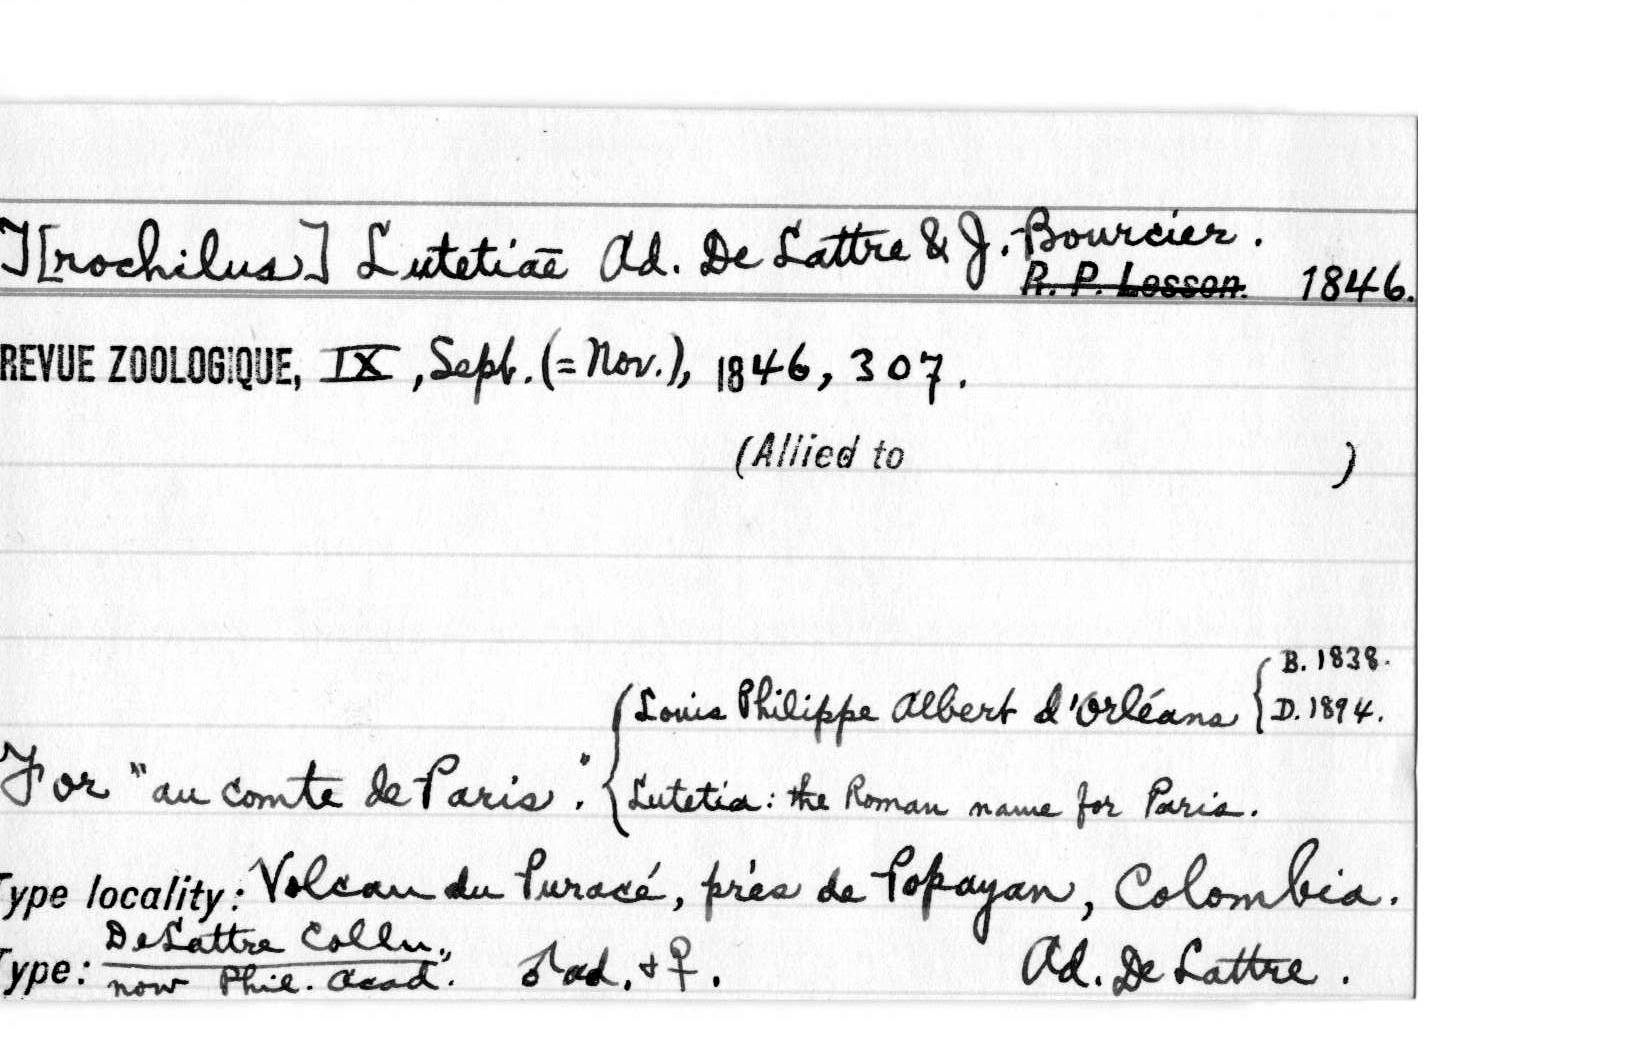 T[rochilus] Lutetiae Ad. De Lattre & J. Bourcier.
R. P. Lesson. 1846.
REVUE ZOOLOGIQUE, IX, Sept. (= Nov.), 1846, 307.
(Allied to )
B. 1838.
Louis Philippe Albert d'Orléans D. 1894.
For "au comte de Paris."
Lutetia: the Roman name for Paris.
Type locality: Volcan du Puracé, près de Popayan, Colombia.
DeLattre Colln.
Type: now Phil. Acad. ♂ ad. + ♀. Ad. De Lattre.